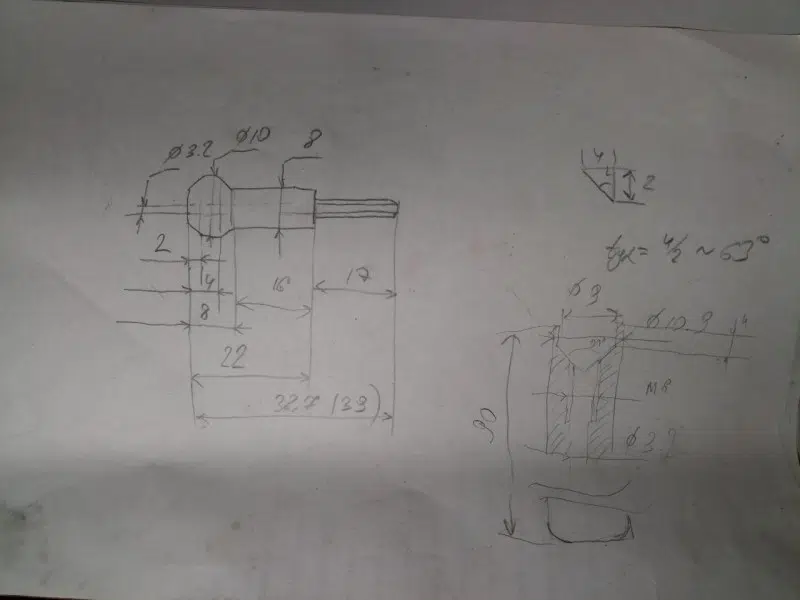 Ø3.2
Ø10
8
2
4
8
16
17
22
32,7 (33)
4
2
tgα = 4/2 ~ 63°
Ø9
Ø10.9
4
M8
90